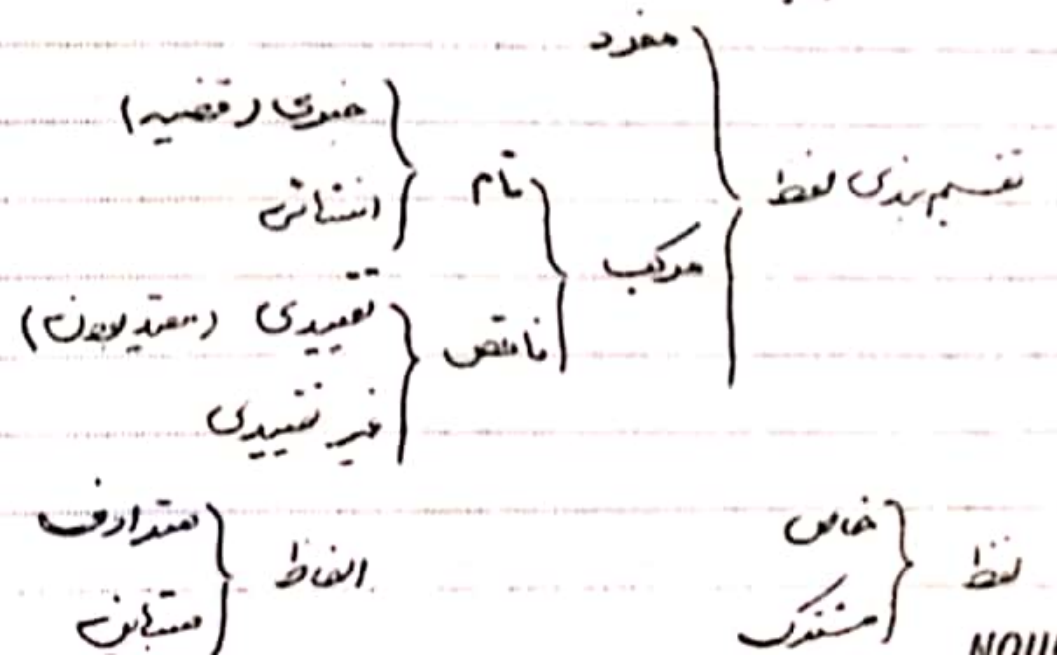 تقسیم بندی لفظ
مفرد
مرکب
تام
خبری (قضیه)
انشائی
ناقص
تقییدی (مقید بودن)
غیر تقییدی
لفظ
خاص
مشترک
الفاظ
مترادف
متباین